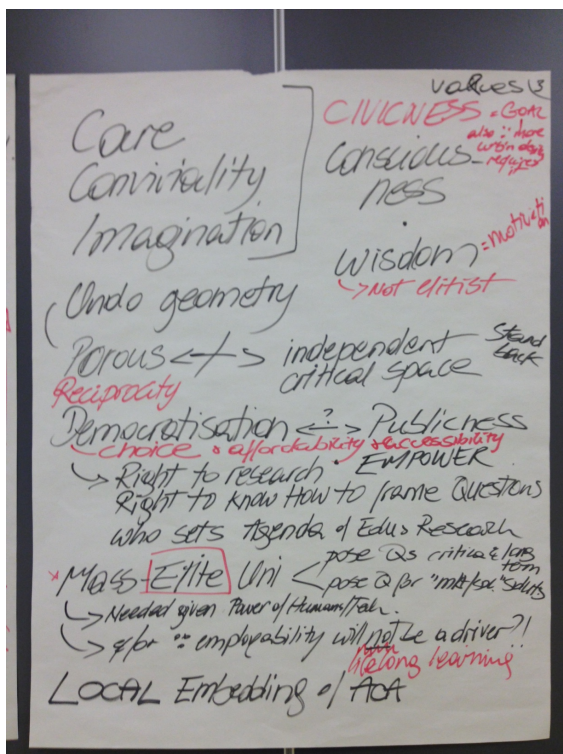 values
CIVICNESS = GOAL
also more
required
Care
Conviviality
Imagination
Conscious-
ness
Wisdom = motivation
→ Not elitist
Undo geometry
Porous <-/-> independent
critical space
Stand
back
Reciprocity
Democratisation <-?-> Publicness
choice • affordability • accessibility
→ Right to research • EMPOWER
Right to know How to frame Questions
who sets Agenda of Edu & Research
* Mass-Elite Uni < pose Qs critical & long
term
pose Q for
→ Needed given Power of Humans/Tech.
→ employability will not be a driver?!
lifelong learning
LOCAL Embedding of